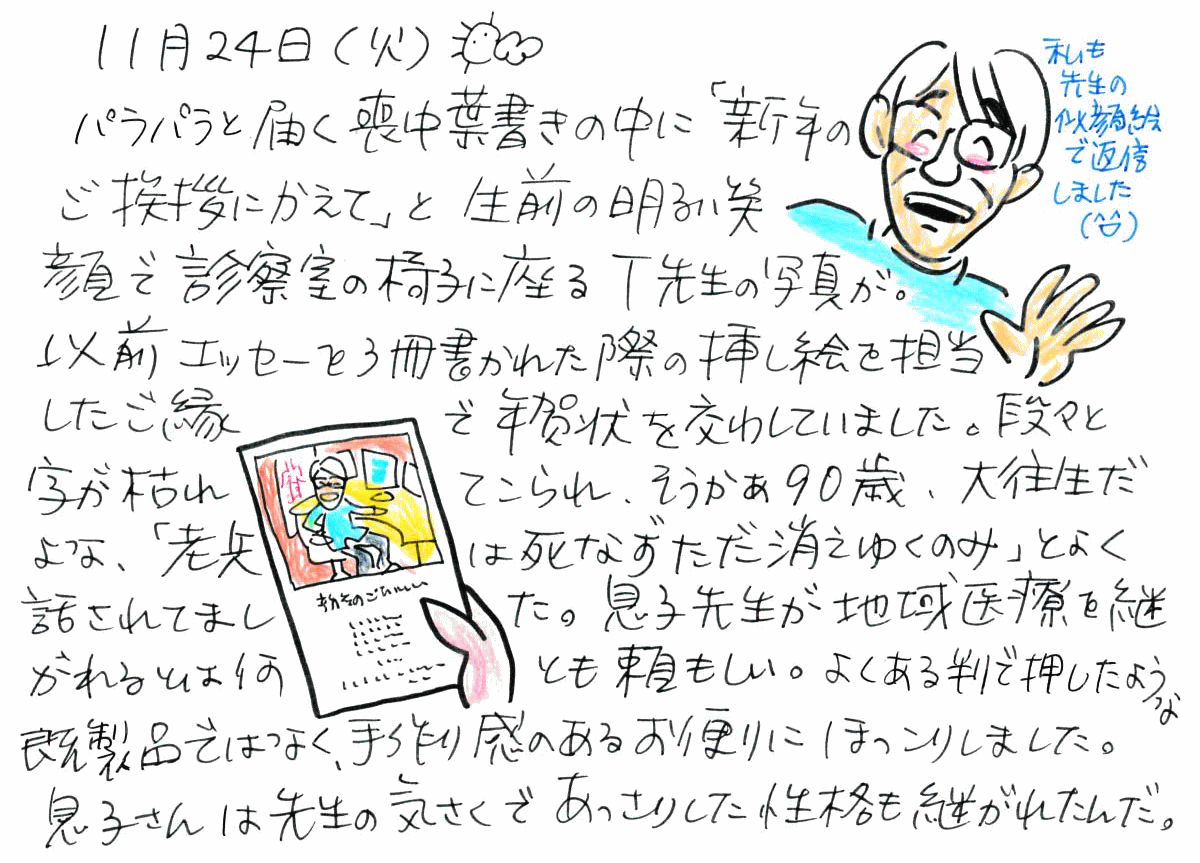 11月24日(火)
パラパラと届く喪中葉書きの中に「新年の
ご挨拶にかえて」と生前の明るい笑
顔で診察室の椅子に座るT先生の写真が。
以前エッセーを3冊書かれた際の挿し絵を担当
したご縁で年賀状を交わしていました。段々と
字が枯れてこられ、そうかぁ90歳、大往生だ
よな、「老兵は死なずただ消えゆくのみ」とよく
話されてました。息子先生が地域医療を継
がれるとは何とも頼もしい。よくある判で押したような
既製品ではなく、手作り感のあるお便りにほっこりしました。
息子さんは先生の気さくであっさりした性格も継がれたんだ。
私も
先生の
似顔絵
で返信
しました
(^^)